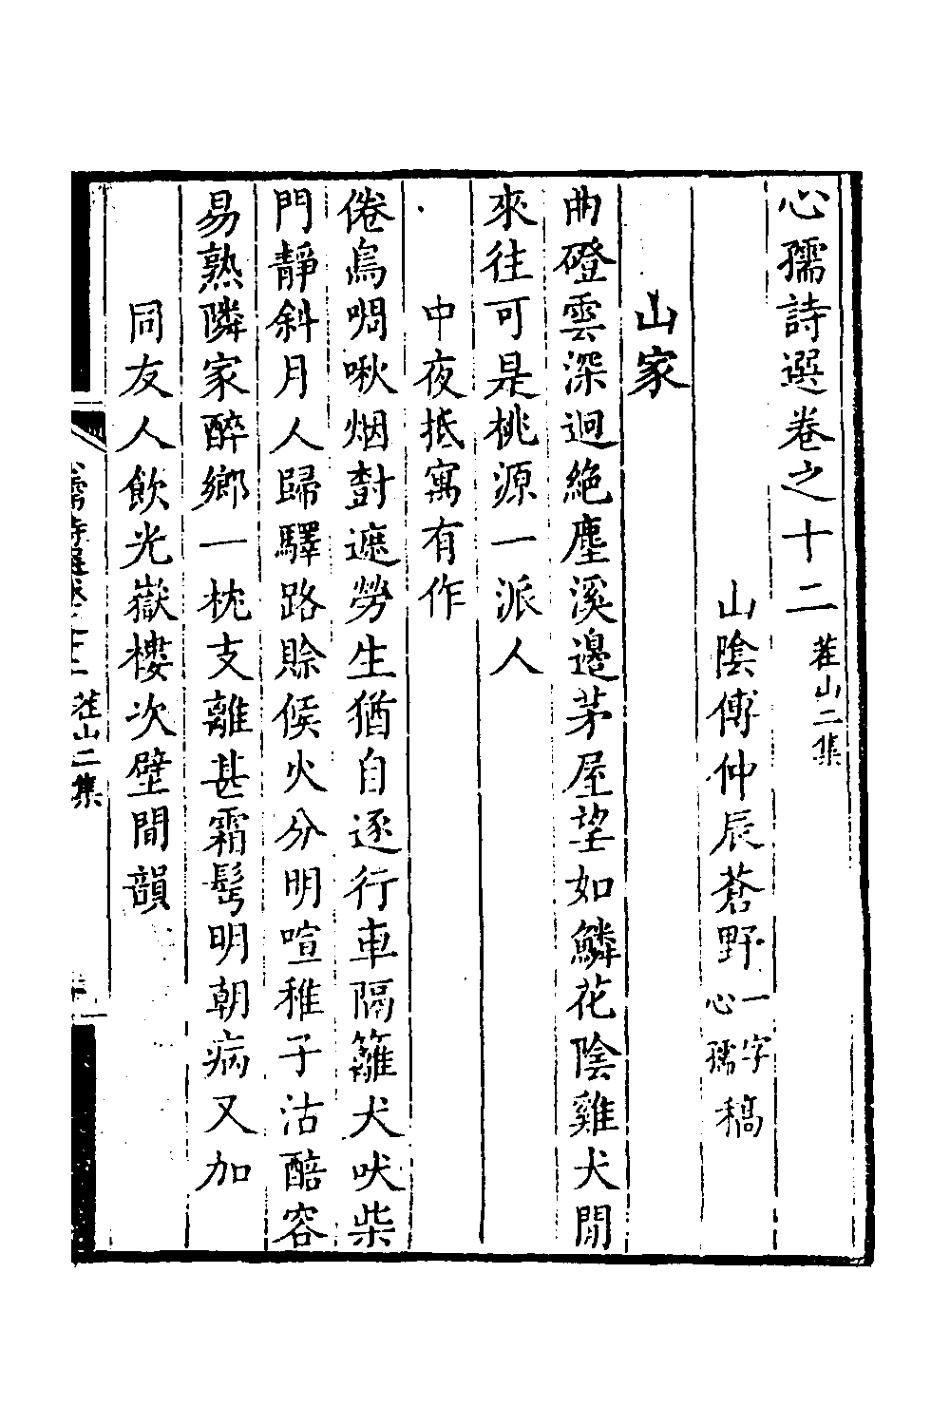 心孺詩選卷之十二 茬山二集
山陰傅仲辰蒼野一字心孺稿
山家
曲磴雲深迥絕塵溪邊茅屋望如鱗花陰雞犬閒
來往可是桃源一派人
中夜抵寓有作
倦鳥啁啾烟樹遮勞生猶自逐行車隔籬犬吠柴
門靜斜月人歸驛路賖候火分明喧稚子沽醅容
易熟隣家醉鄉一枕支離甚霜髩明朝病又加
同友人飲光嶽樓次壁間韻
心孺詩選卷之十二 茬山二集